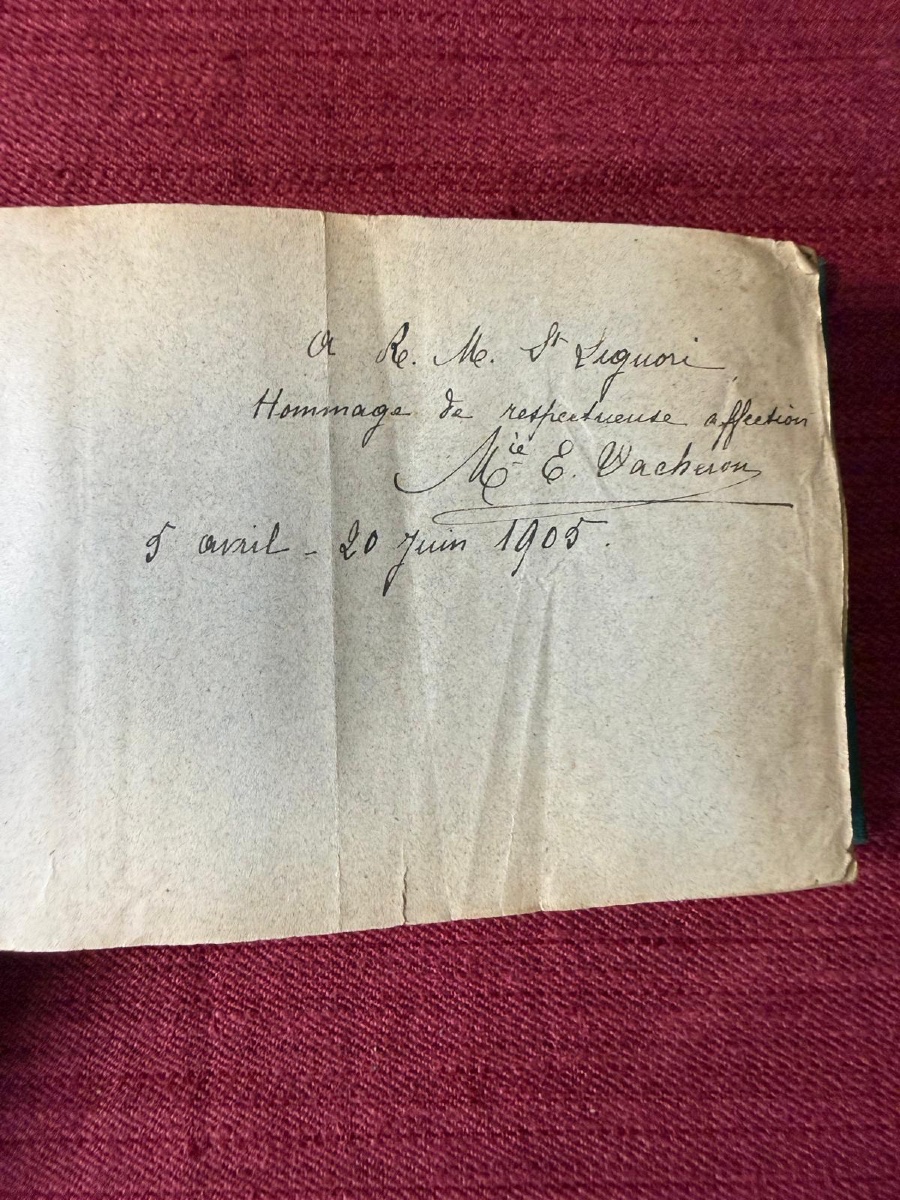 A R. M. St Liguori
Hommage de respectueuse affection
Mie E. Vacheron
5 avril - 20 Juin 1905.